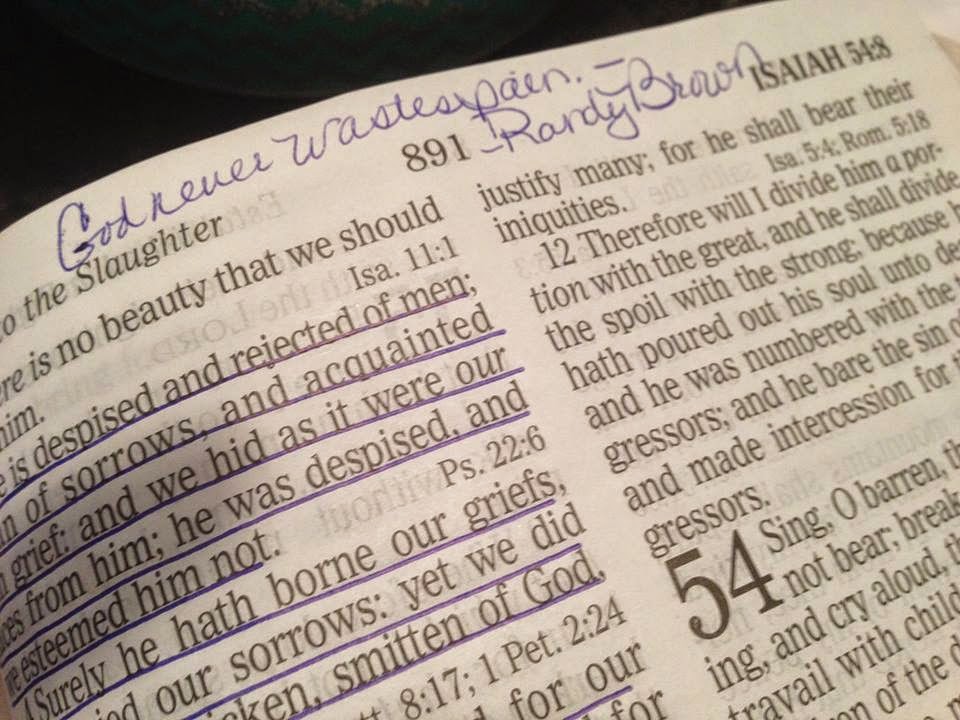 God never wastes pain. -
- Randy Brown
891
ISAIAH 54:8
to the Slaughter
there is no beauty that we should
him.
Isa. 11:1
is despised and rejected of men;
of sorrows, and acquainted
grief: and we hid as it were our
from him; he was despised, and
esteemed him not.
Ps. 22:6
Surely he hath borne our griefs,
our sorrows: yet we did
smitten of God,
8:17; 1 Pet. 2:24
for our
for
justify many; for he shall bear their
iniquities.
Isa. 5:4; Rom. 5:18
12 Therefore will I divide him a por-
tion with the great, and he shall divide
the spoil with the strong; because
hath poured out his soul unto
and he was numbered with the
gressors; and he bare the sin
and made intercession for
gressors.
54 Sing, O barren,
not bear; break
ing, and cry aloud,
travail with child
of the